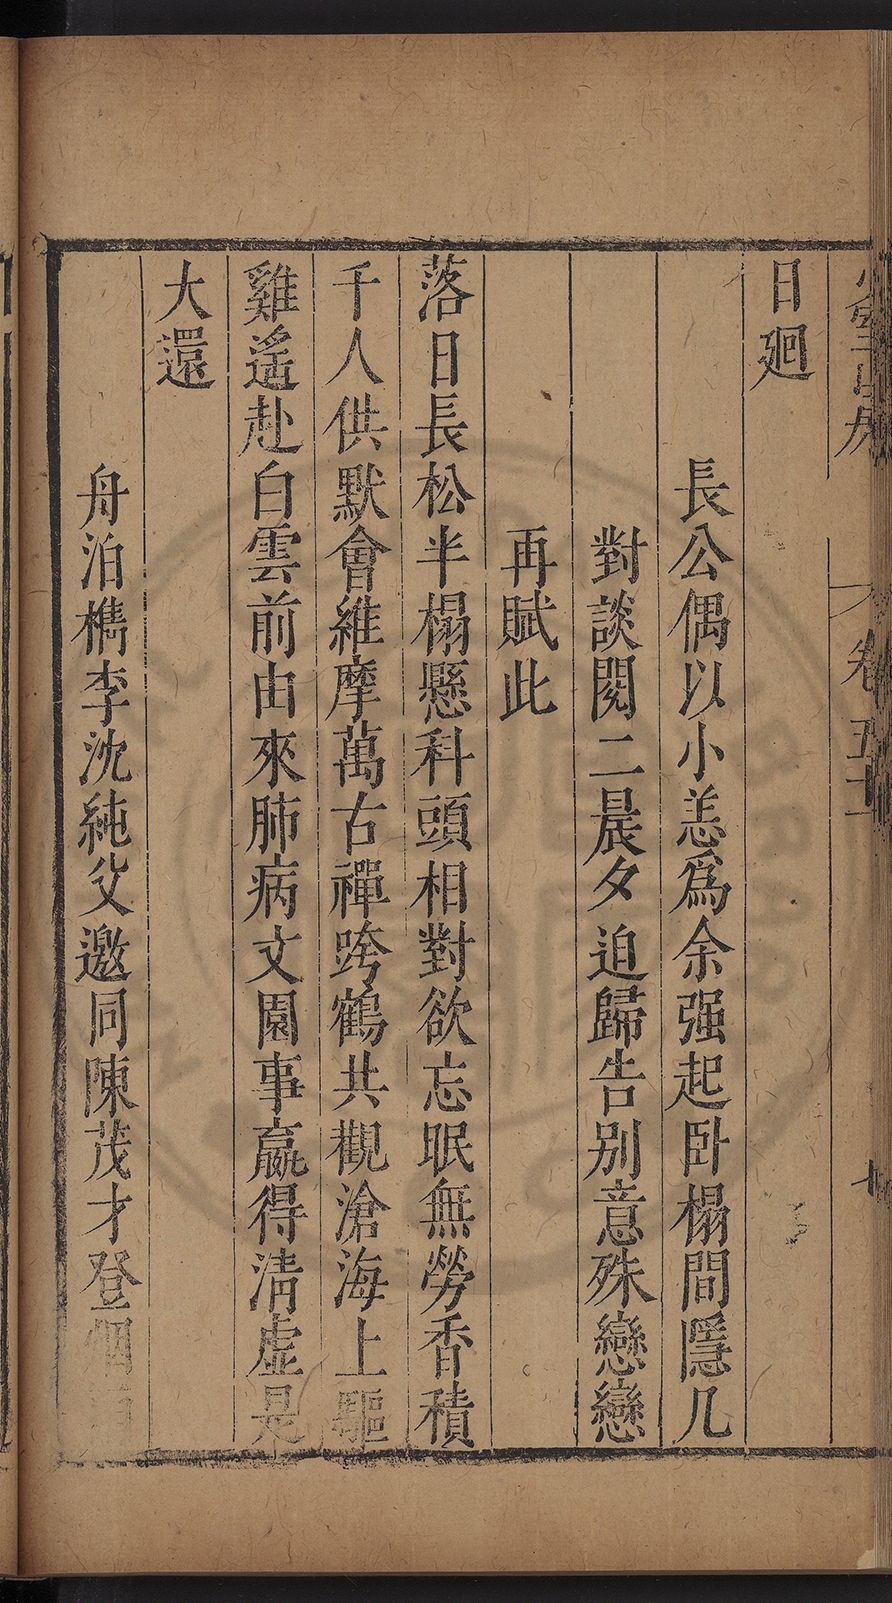 卷五十
七
日廻
長公偶以小恙爲余强起卧榻間隱几
對談閱二晨夕迫歸告别意殊戀戀
再賦此
落日長松半榻懸科頭相對欲忘眠無勞香積
千人供默會維摩萬古禪跨鶴共觀滄海上驅
雞遙赴白雲前由來肺病文園事贏得清虛是
大還
舟泊檇李沈純父邀同陳茂才登烟